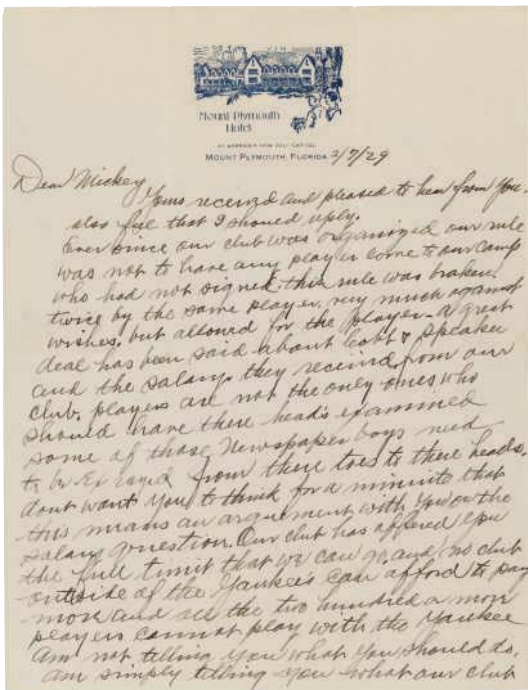 Mount Plymouth
Hotel
AT AMERICA'S NEW GOLF CAPITAL
MOUNT PLYMOUTH, FLORIDA 2/7/29
Dear Mickey
Yours received and pleased to hear from you.
also feel that I should reply.
Ever since our club was organized our rule
was not to have any player come to our camp
who had not signed. this rule was broken
twice by the same player. very much against
wishes. but allowed for the player. a great
deal has been said about Cobb & Speaker
and the salary they received from our
club. players are not the only ones who
should have there head's examined
some of those Newspaper boys need
to be Ex rayed from there toes to there heads.
dont want you to think for a minute that
this means an arguement with you on the
salary question. Our club has offered you
the full limit that we can go. and no club
outside of the Yankees can afford to pay
more and all the two hundred a more
players cannot play with the Yankee
Am not telling you what you should do.
am simply telling you what our club